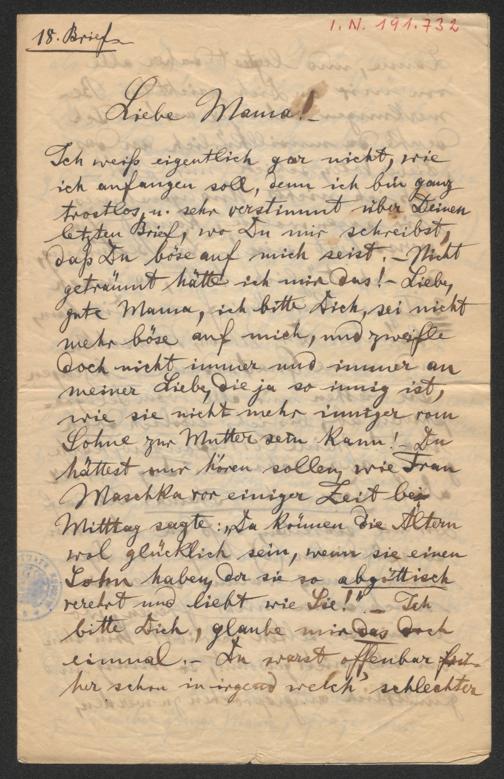 18. Brief
I. N. 191.732
Liebe Mama!
Ich weiß eigentlich gar nicht, wie
ich anfangen soll, denn ich bin ganz
trostlos, u. sehr verstimmt über Deinen
letzten Brief, wo Du mir schreibst,
daß Du böse auf mich seist. – Nicht
geträumt hätte ich mir das! – Liebe,
gute Mama, ich bitte Dich, sei nicht
mehr böse auf mich, und zweifle
doch nicht immer und immer an
meiner Liebe, die ja so innig ist,
wie sie nicht mehr inniger vom
Sohne zur Mutter sein kann! – Du
hättest nur hören sollen, wie Frau
Maschka vor einiger Zeit bei
Mittag sagte: „Da können die Ältern
wol glücklich sein, wenn sie einen
Sohn haben, der sie so abgöttisch
verehrt und liebt wie Sie!" – Ich
bitte Dich, glaube mir das doch
einmal. – Du warst offenbar
her schon in irgend welch' schlechter